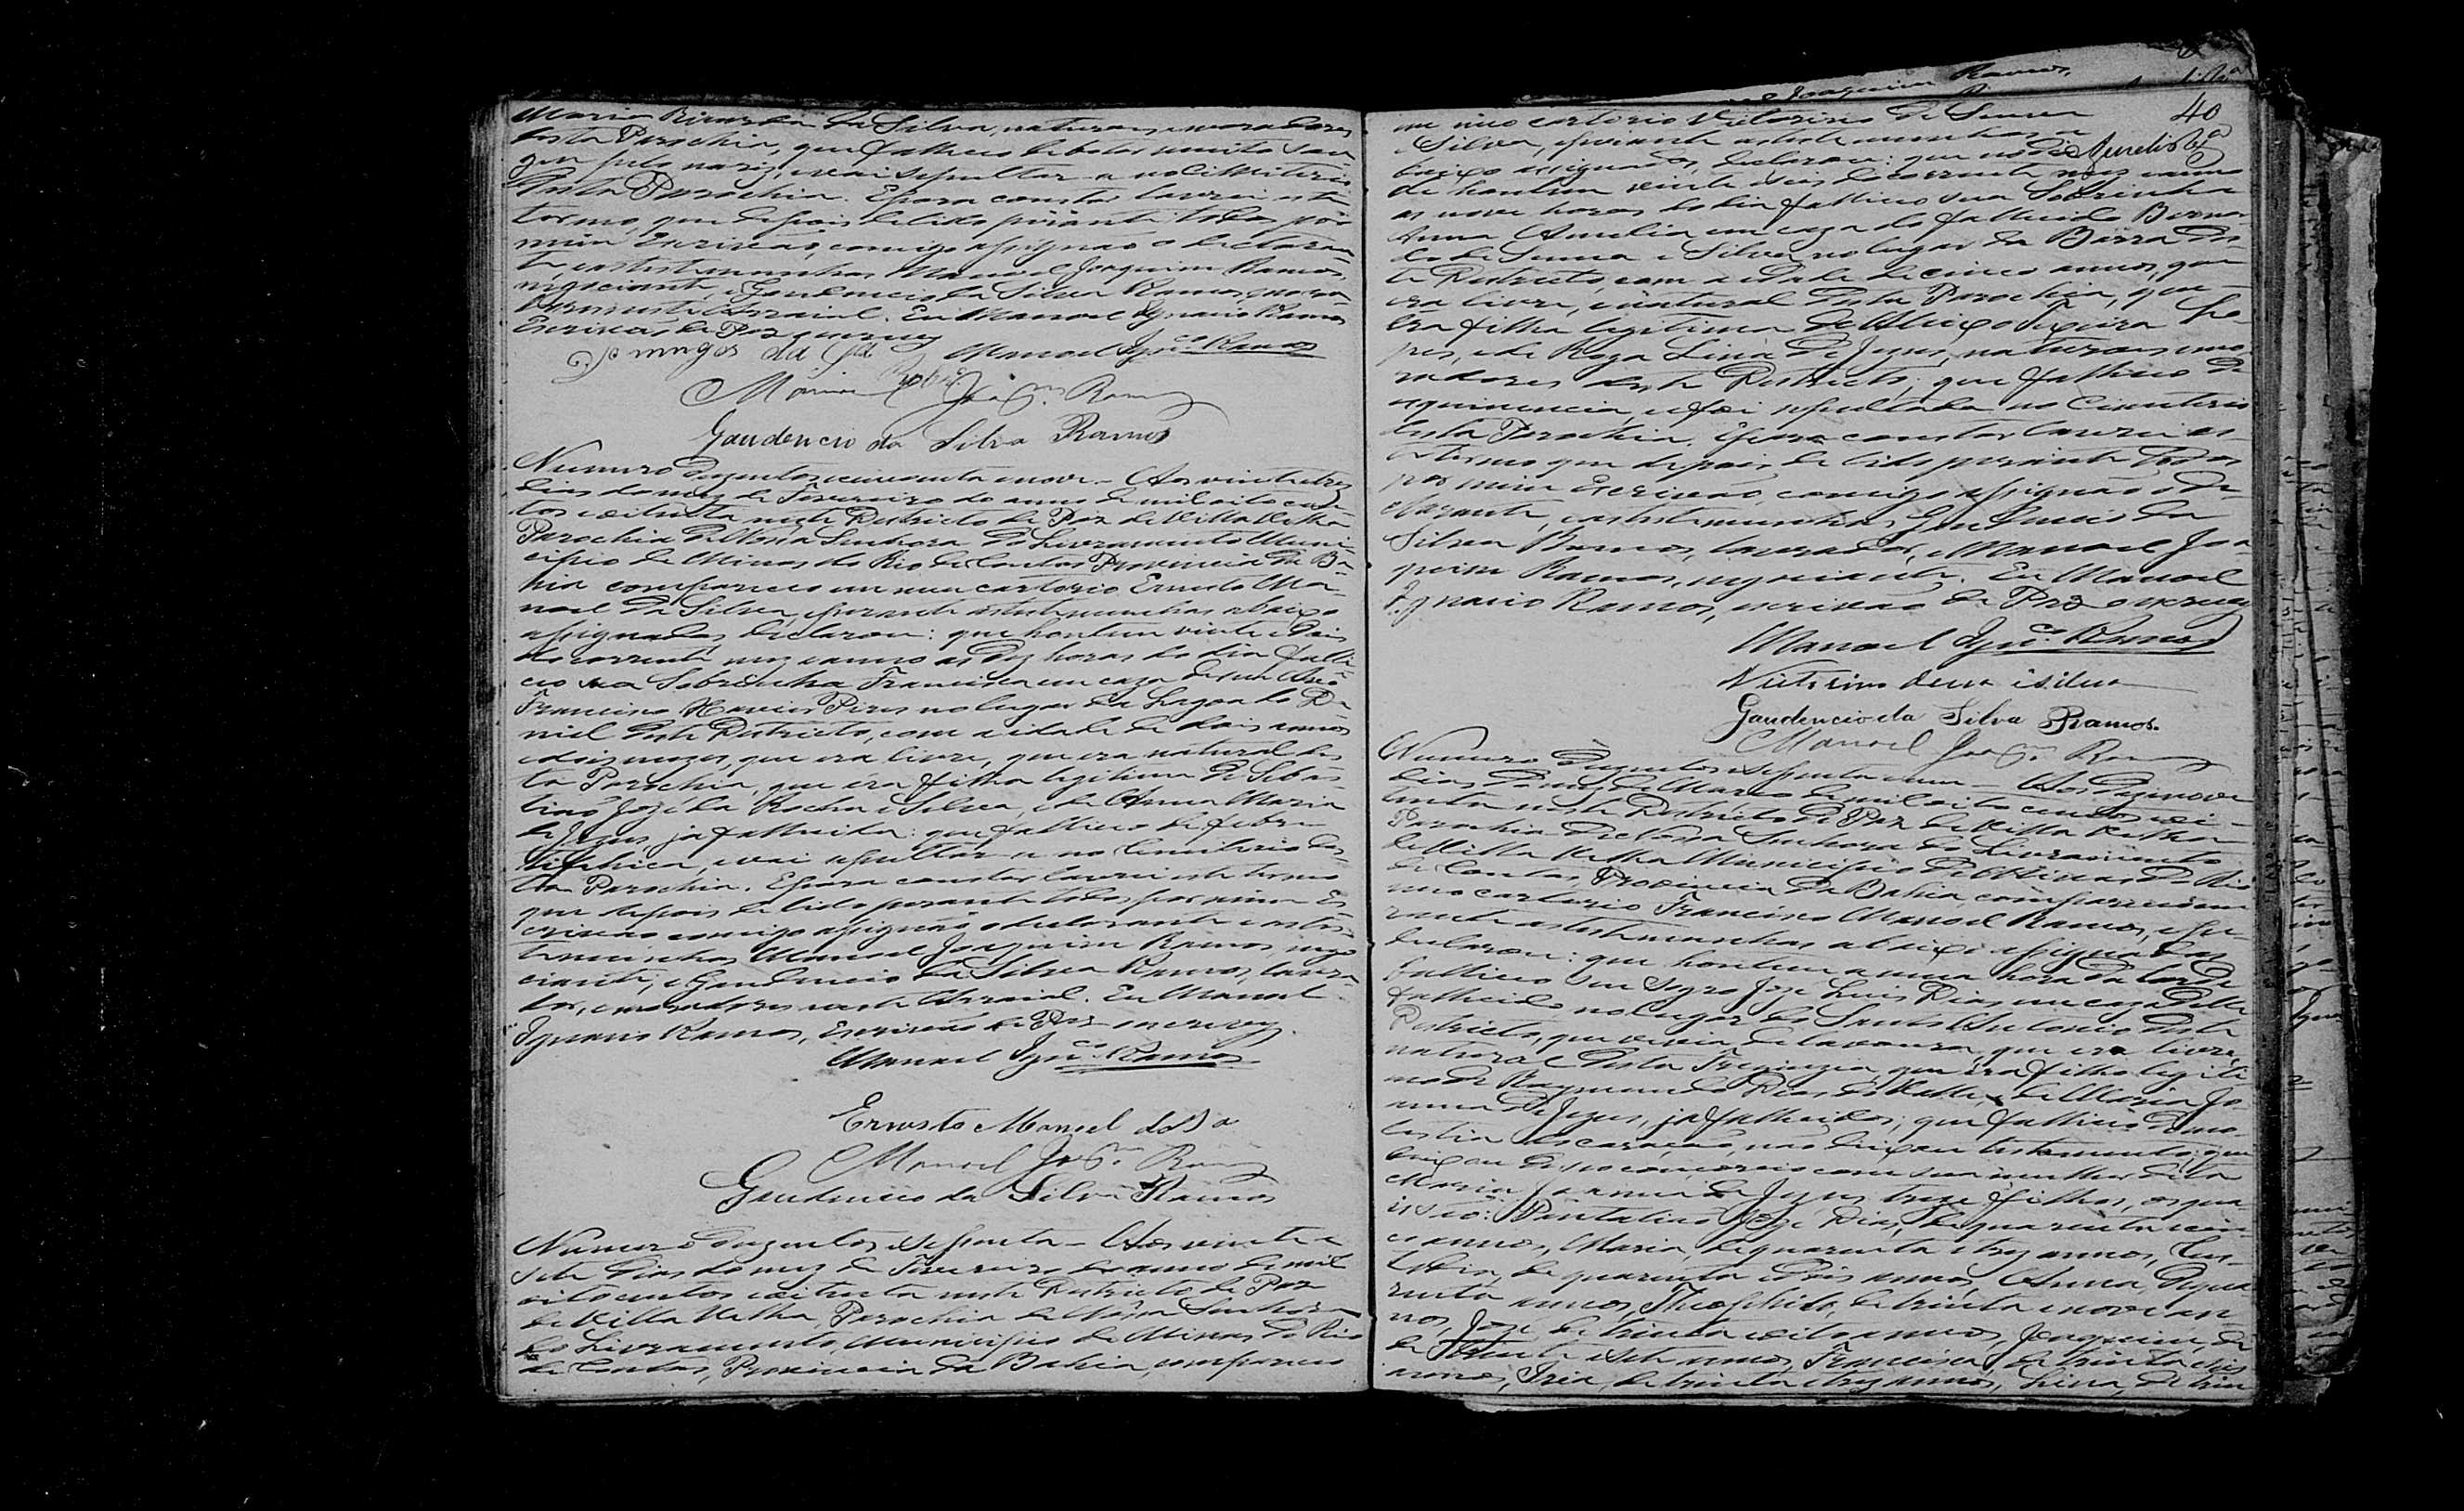 Maria Ricarda da Silva, naturaes e moradores
desta Parochia, que falleceo de botar muito san
gue pelo nariz, e vai sepultar-se no Cimiterio
desta Parochia. E para constar lavrei este
termo, que depois de lido perante todos por
mim Escrivão, comigo assignão o declaran
te, e as testemunhas Manoel Joaquim Ramos,
negociante, e Gaudencio da Silva Ramos, mora
dores neste Arraial. Eu Manoel Ignacio Ramos
Escrivão de Paz o escrevy
Manoel Ignco Ramos
Domingos da
Manoel Joaqm Ramos
Gaudencio da Silva Ramos
Numero duzentos secenta e nove - Aos vinte e tres
dias do mez de Fevereiro do anno de mil oito cen
tos e oitenta neste Districto de Paz de Villa Velha
Parochia de Nossa Senhora do Livramento Muni-
cipio de Minas do Rio de Contas Provincia da Ba-
hia compareceo em meu cartorio Ernesto Ma-
noel da Silva, e perante as testemunhas abaixo
assignadas, declarou: que hontem vinte e dois
do corrente mez e anno as dez horas do dia falle-
ceo sua Sobrinha Francisca em caza de seu Avô
Francisco Xavier Pires no lugar da Lagoa do De
niel deste Districto, com a idade de dois annos
e dois mezes, que era livre, que era natural des
ta Parochia, que era filha legitima de Sebas-
tião José da Rocha e Silva, e de Anna Maria
de Jezus, ja fallecida: que falleceo de febre
, e vai sepultar-se no Cemiterio des-
ta Parochia. E para constar lavrei este termo
que depois de lido perante todos por mim Es-
crivão comigo assignão o declarante e as tes-
temunhas Manoel Joaquim Ramos, nego
ciante, e Gaudencio da Silva Ramos, lavra-
dor, e moradores neste Arraial. Eu Manoel
Ignacio Ramos, Escrivão de Paz o escrevy.
Manoel Ignco Ramos
Ernesto Manoel da Sa
Manoel Joaqm Ramos
Gaudencio da Silva Ramos
Numero duzentos e setenta - Aos vinte e
sete dias do mez de Fevereiro do anno de mil
oitocentos e oitenta neste Districto de Paz
de Villa Velha, Parochia de Nossa Senhora
do Livramento, Municipio de Minas do Rio
de Contas, Provincia da Bahia, compareceo
40
em meo cartorio Victorino de Senna
e Silva, e perante as testemunhas a
baixo assignadas, declarou: que no dia
de hontem vinte e seis do corrente mez e anno
as nove horas do dia falleceo sua Sobrinha
Anna Amelia em caza do fallecido Bernar
do de Senna e Silva no lugar da Barra des-
te Districto, com a idade de cinco annos, que
era livre, e natural desta Parochia, que
era filha legitima de Aleixo
pes, e de Roza Lina de Jezus, naturaes e mo
radores deste Districto; que falleceo de
esquinencia, e foi sepultada no Cimiterio
desta Parochia. E para constar lavrei es-
te termo que depois de lido perante todos
por mim Escrivão, comigo assignão o de-
clarante, e as testemunhas Gaudencio da
Silva Ramos, lavrador, e Manoel Joa-
quim Ramos, negociante. Eu Manoel
Ignacio Ramos, escrivão de Paz o escrevy
Manoel Ignco Ramos
Victorino de e Silva
Gaudencio da Silva Ramos.
Manoel Joaqm Ramos
Numero duzentos e setenta e um - Aos dezenove
dias do mez de Março de mil oito centos e oi-
tenta neste Districto de Paz de Villa Velha
Parochia de Nossa Senhora do Livramento
de Villa Velha Municipio de Minas do Rio
de Contas, Provincia da Bahia, compareceo em
meo cartorio Francisco Manoel Ramos, e pe-
rante as testemunhas abaixo assignadas
declarou: que hontem a uma hora da tarde
falleceo seu sogro José Luis Dias em caza delle
fallecido no lugar de Santo Antonio deste
Districto, que vivia de lavoura, que era livre,
natural desta Freguezia, que era filho legiti
mo de Raymundo Dias do Valle, e de Maria Jo
anna de Jezus, ja fallecidos; que falleceo de mo-
lestia do coração, não deixou testamento; que
deixou de seo concorcio com sua mulher Dona
Maria Joanna de Jezus treze filhos, os qua-
es são: Pantalião José Dias, de quarenta e cin-
co annos, Maria, de quarenta e trez annos,
de quarenta e dois annos, Anna, de qua-
renta annos, Theophilo, de trinta e nove an-
nos, José de trinta e oito annos, Joaquim, de
trinta e sete annos, Francisca, de trinta e seis
annos, Iria, de trinta e trez annos, Lina, de trin